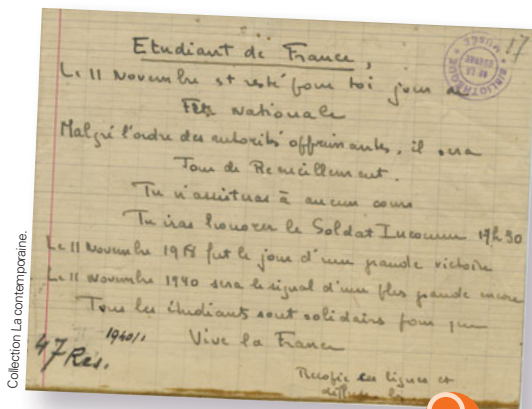 17
BIBLIOTHÈQUE
MUSÉE
DE LA
GUERRE
Etudiant de France,
Le 11 Novembre est resté pour toi jour de
Fête Nationale
Malgré l'ordre des autorités opprimantes, il sera
Jour de Recueillement.
Tu n'assisteras à aucun cours
Tu iras honorer le Soldat Inconnu 17h30
Le 11 Novembre 1918 fut le jour d'une grande victoire
Le 11 Novembre 1940 sera le signal d'une plus grande encore
Tous les étudiants sont solidaires pour que
Vive la France
Recopie ces lignes et
diffuse-les
47 Res.
1940/1
Collection La contemporaine.